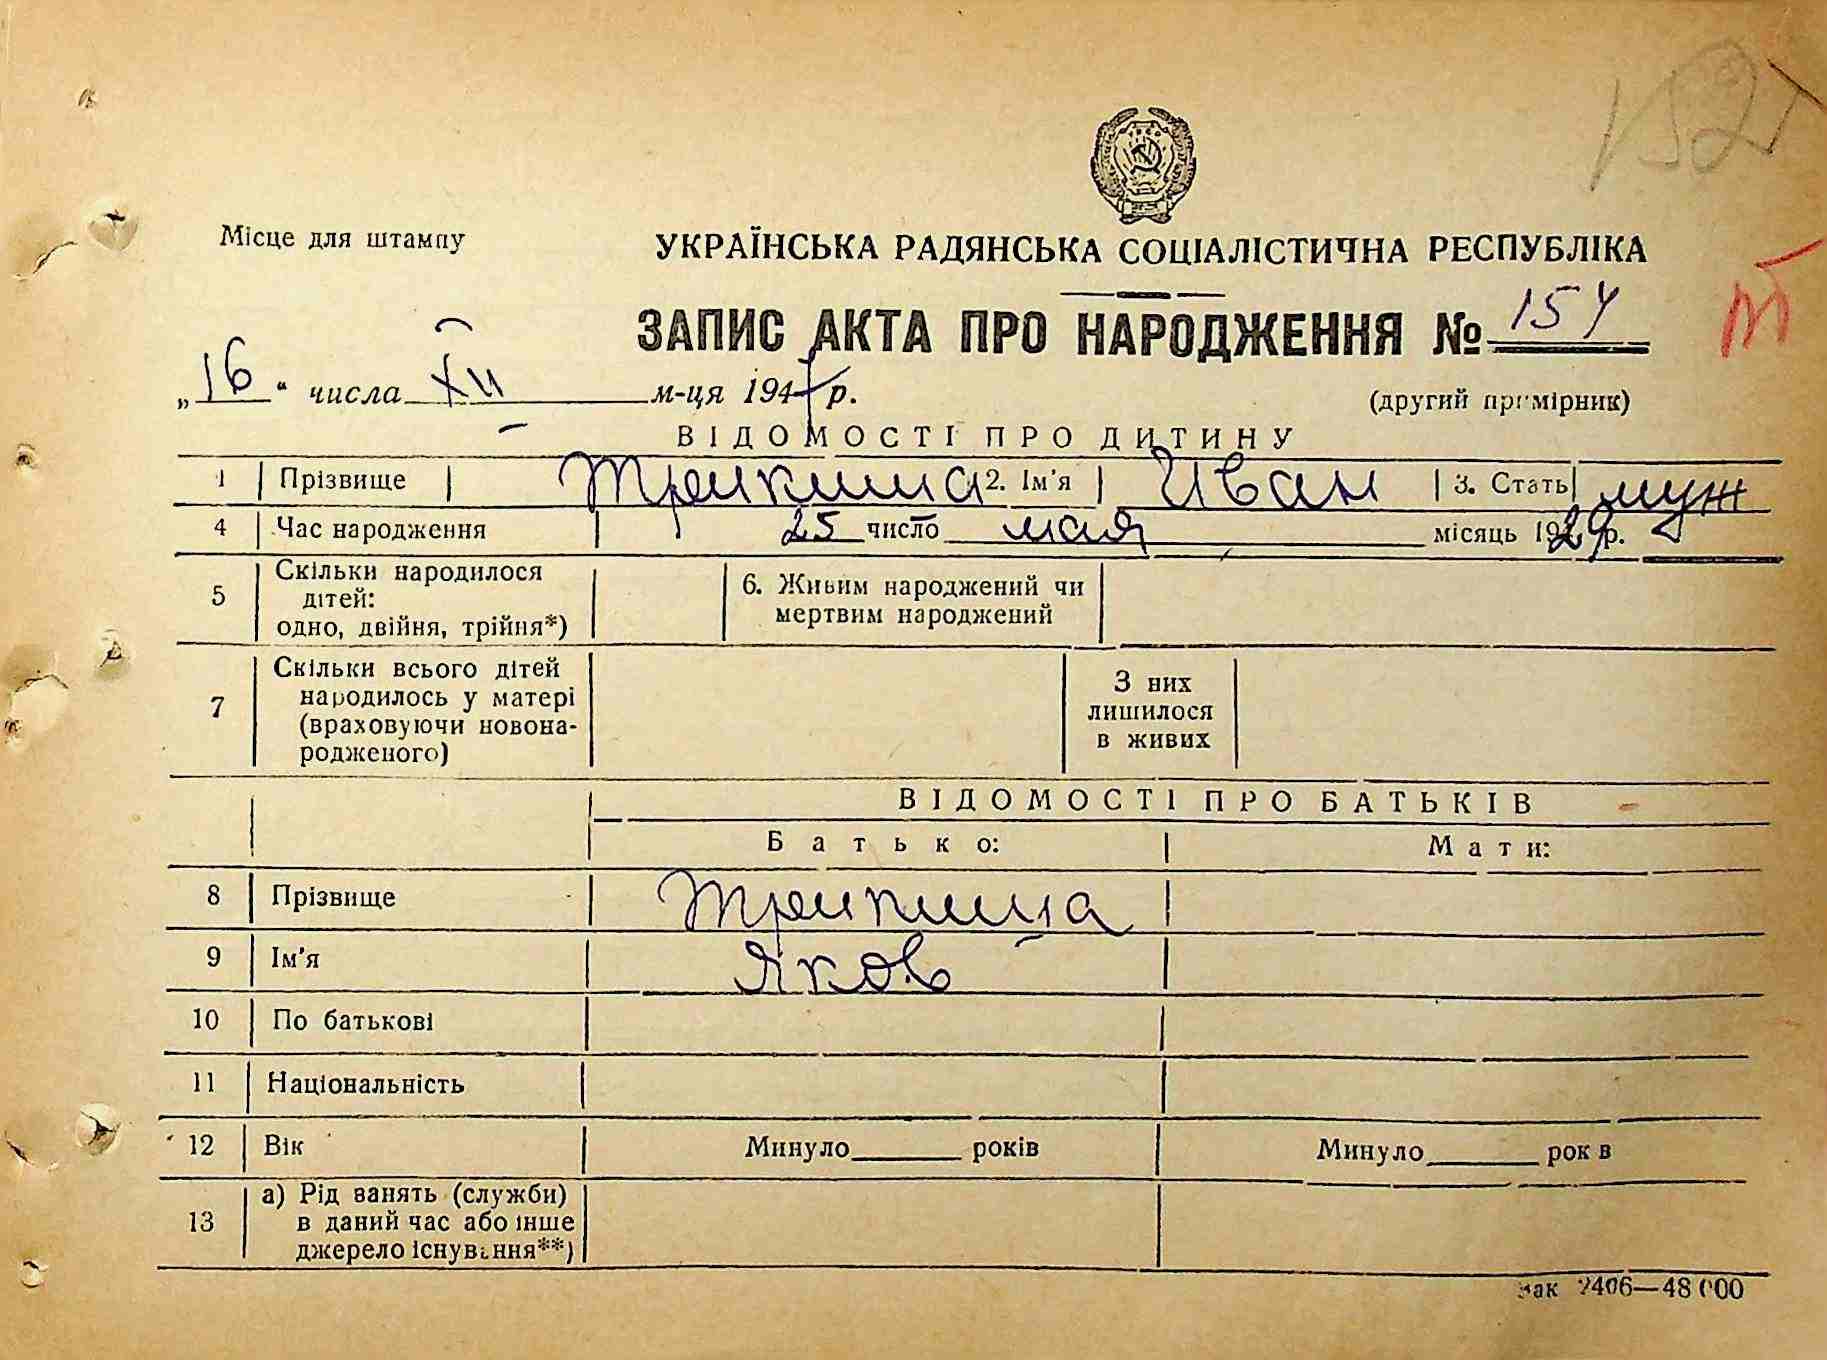 Місце для штампу
УКРАЇНСЬКА РАДЯНСЬКА СОЦІАЛІСТИЧНА РЕСПУБЛІКА
ЗАПИС АКТА ПРО НАРОДЖЕННЯ № 154
„16“ числа XII м-ця 194 р.
(другий примірник)
ВІДОМОСТІ ПРО ДИТИНУ
1 Прізвище Трикиша 2. Ім'я Иван 3. Стать муж
4 Час народження 25 число мая місяць 1929 р.
5 Скільки народилося дітей: одно, двійня, трійня*) 6. Живим народжений чи мертвим народжений
7 Скільки всього дітей народилось у матері (враховуючи новонародженого) З них лишилося в живих
ВІДОМОСТІ ПРО БАТЬКІВ
Батько: Мати:
8 Прізвище Трикиша
9 Ім'я Яков
10 По батькові
11 Національність
12 Вік Минуло років Минуло рок в
13 а) Рід занять (служби) в даний час або інше джерело існування**)
зак 2406—48 000